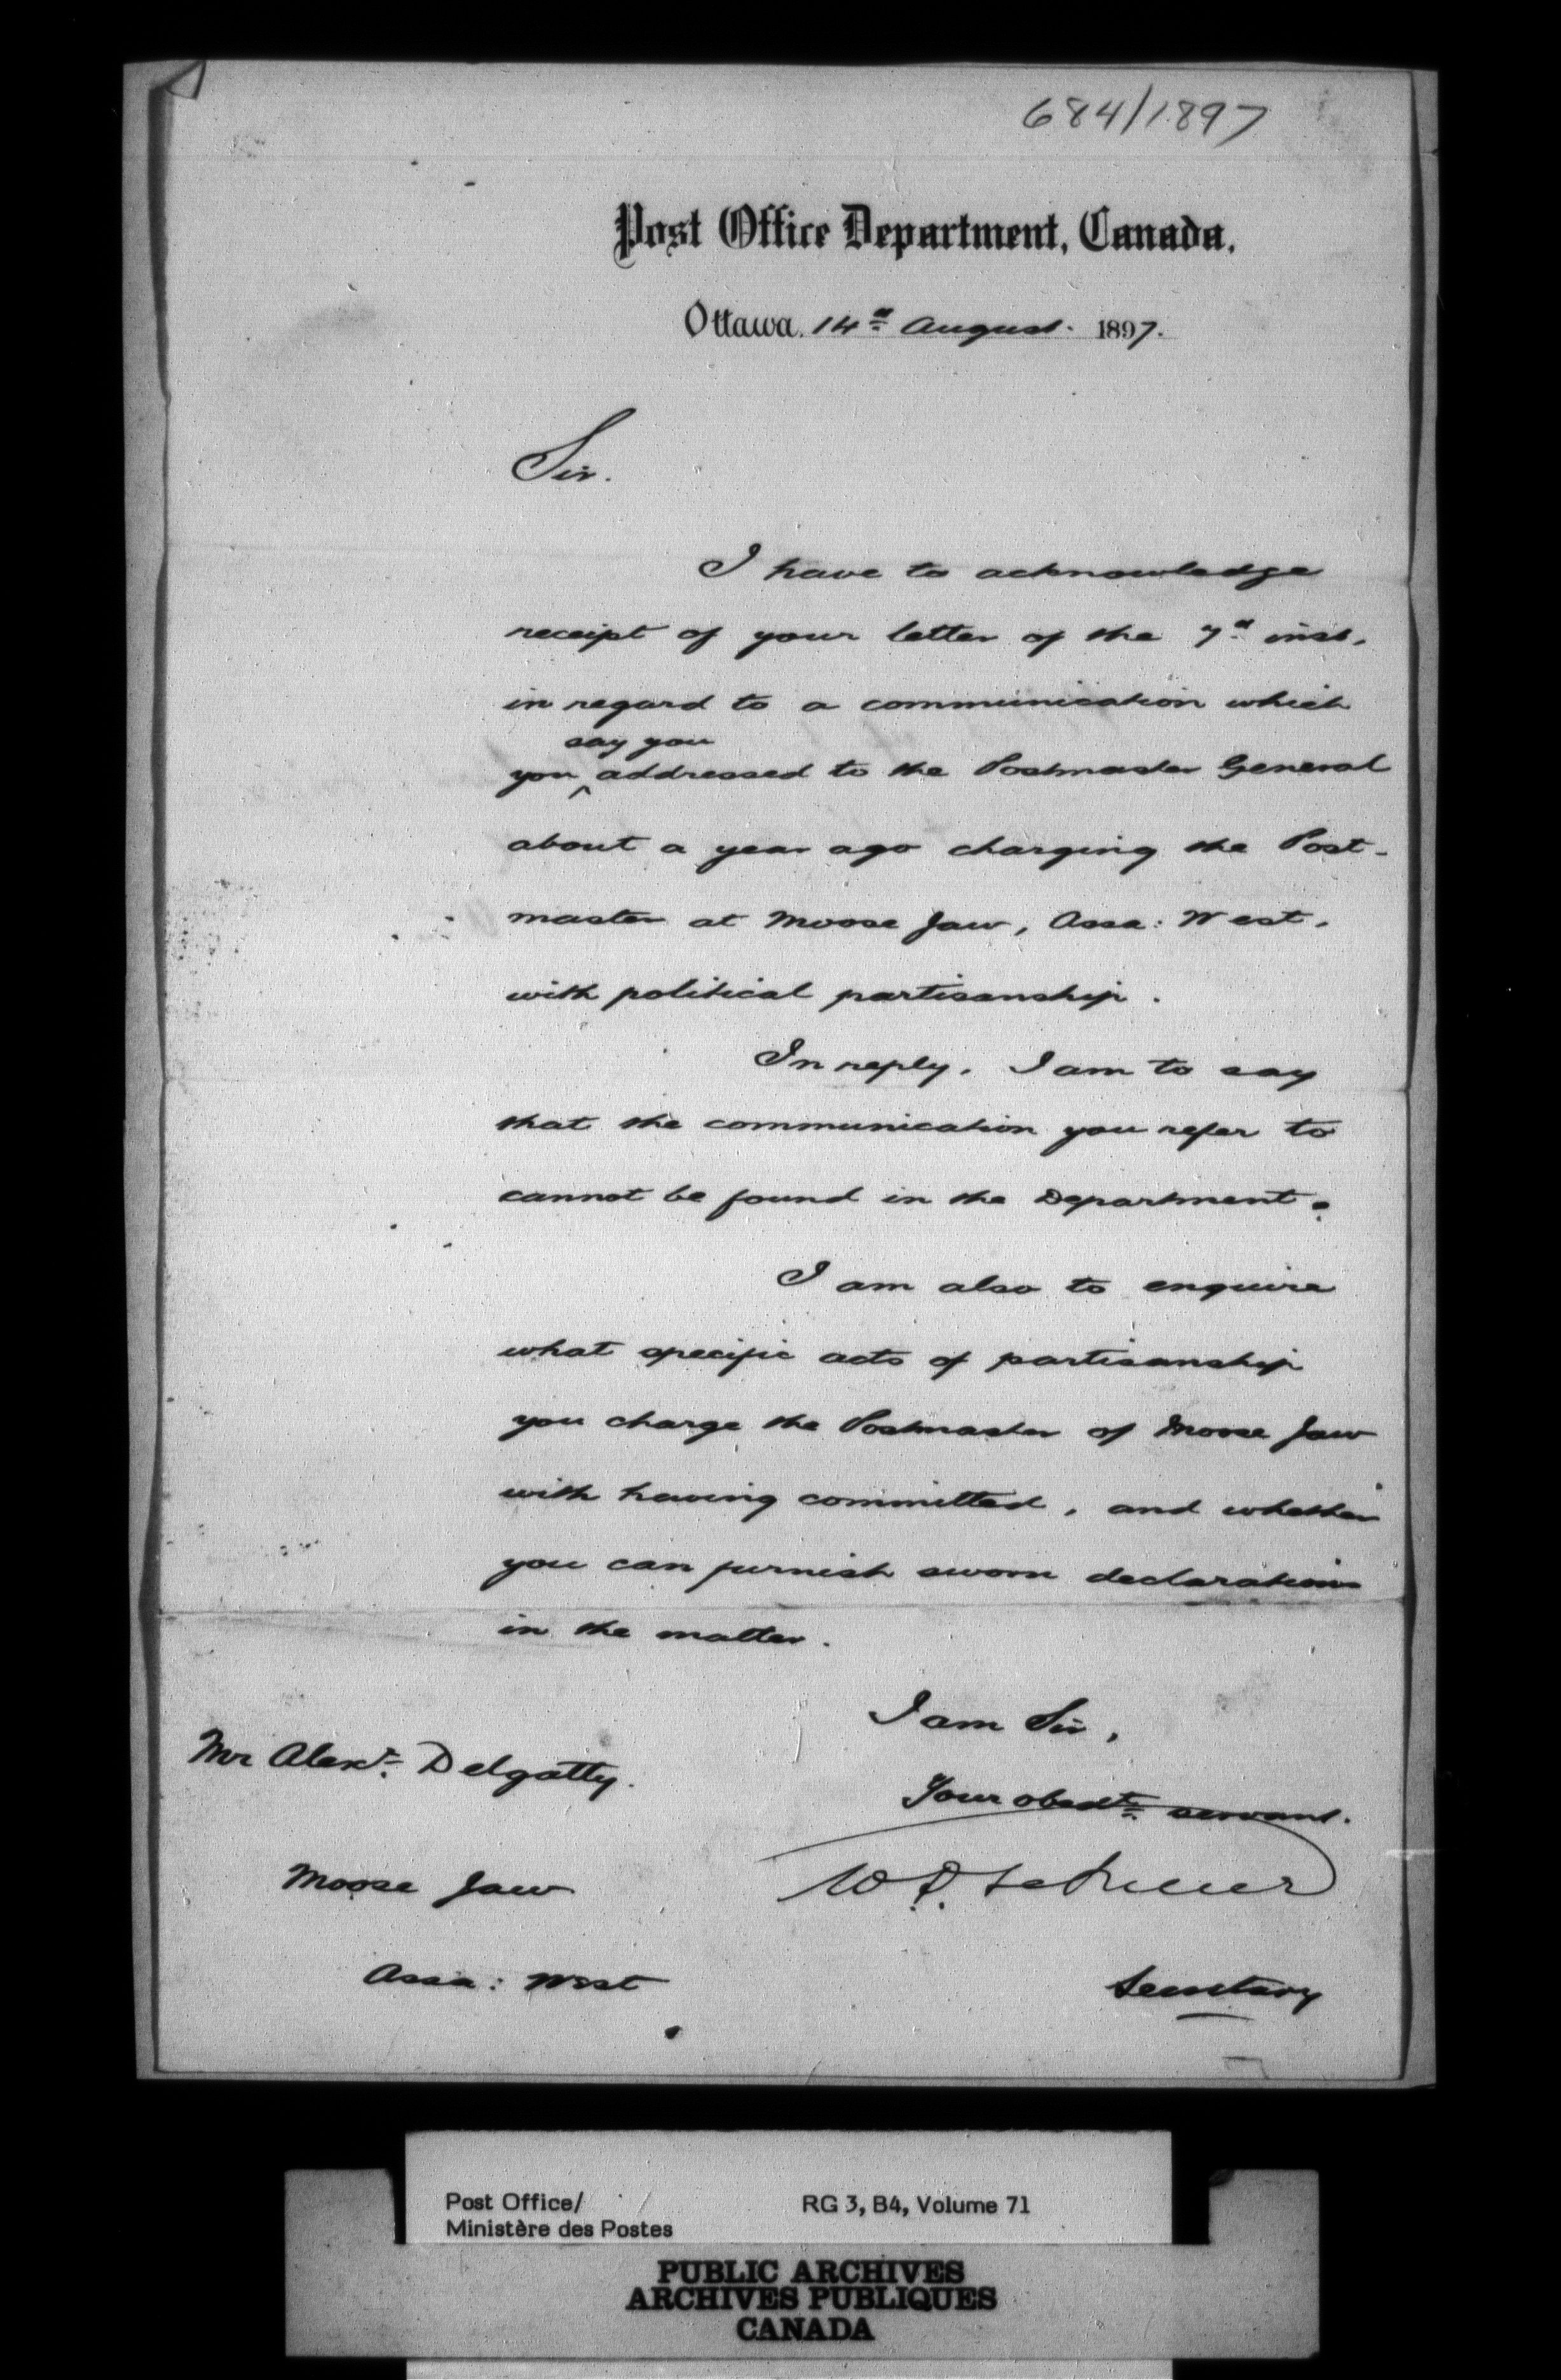 684/1897
Post Office Department, Canada.
Ottawa. 14th August. 1897.
Sir.
I have to acknowledge
receipt of your letter of the 7th inst,
in regard to a communication which
say you
you ^ addressed to the Postmaster General
about a year ago charging the Post-
master at Moose Jaw, Assa: West,
with political partisanship.
In reply, I am to say
that the communication you refer to
cannot be found in the Department.
I am also to enquire
what specific acts of partisanship
you charge the Postmaster of Moose Jaw
with having committed, and whether
you can furnish sworn declarations
in the matter.
I am Sir,
Mr Alexr. Delgatty.
Your obedt. servant.
Moose Jaw
W D
Assa: West
Secretary
Post Office/
Ministère des Postes
RG 3, B4, Volume 71
PUBLIC ARCHIVES
ARCHIVES PUBLIQUES
CANADA